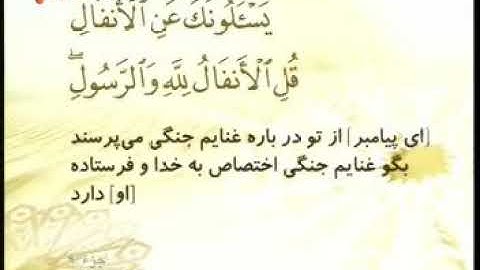 يَسْـَٔلُونَكَ عَنِ ٱلْأَنفَالِ
قُلِ ٱلْأَنفَالُ لِلَّهِ وَٱلرَّسُولِ ۖ
[ای پیامبر] از تو در باره غنایم جنگی می‌پرسند
بگو غنایم جنگی اختصاص به خدا و فرستاده
[او] دارد
جزء ۹